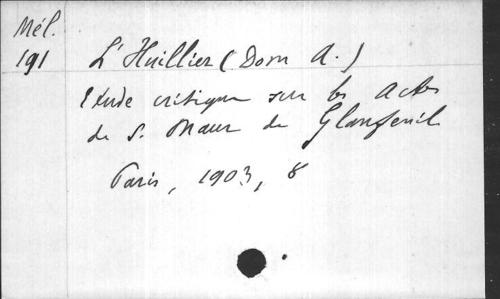 Mél.
191
L'Huillier (Dom A.)
Etude critique sur les Actes
de S. Maur de Glanfeuil
Paris, 1903, 8